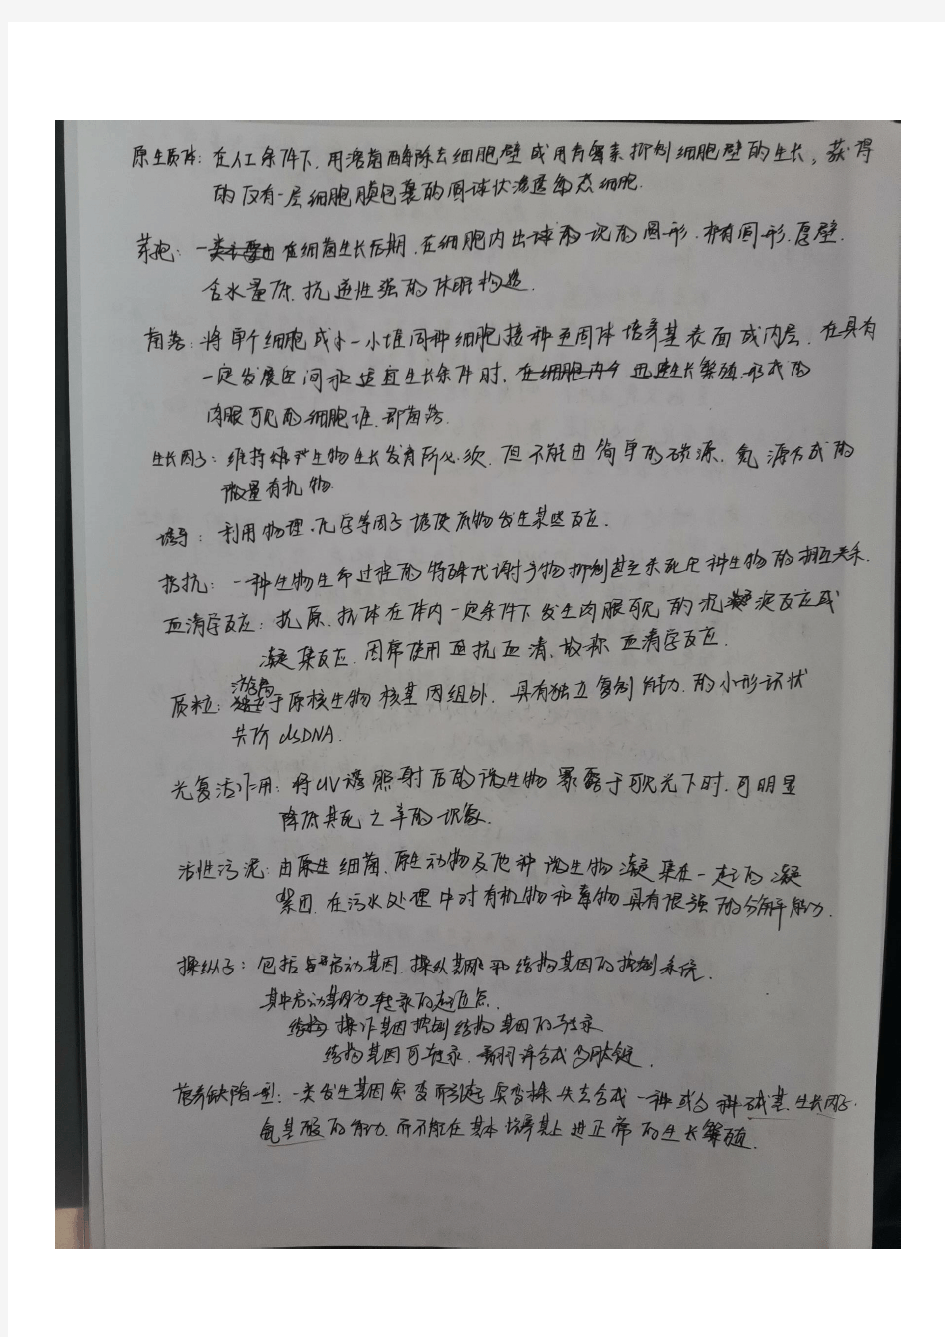 原生质体：在人工条件下，用溶菌酶除去细胞壁或用青霉素抑制细胞壁的生长，获得
的仅有一层细胞膜包裹的圆球状渗透敏态细胞.
芽孢：一类 在细菌生长后期，在细胞内 的圆形、椭圆形、厚壁、
含水量低、抗逆性强的休眠构造.
菌落：将单个细胞或小一小堆同种细胞接种至固体培养基表面或内层，在具有
一定发展空间和适宜生长条件时， 迅速生长繁殖形成的
肉眼可见的细胞堆，即菌落.
生长因子：维持 生物生长发育所必须，但不能由简单的碳源、氮源合成的
微量有机物.
诱导：利用物理、化学等因子诱使底物发生某些反应.
拮抗：一种生物生命过程的特殊代谢产物抑制甚至杀死它种生物的相互关系.
血清学反应：抗原、抗体在体内一定条件下发生肉眼可见的沉淀反应或
凝集反应，因常使用 抗血清，故称血清学反应.
质粒：游离于原核生物核基因组外，具有独立复制能力的小形环状
共价dsDNA.
光复活作用：将UV 照射后的微生物暴露于可见光下时，可明显
降低其死亡率的现象.
活性污泥：由原生细菌、原生动物及它种微生物凝集在一起的凝
絮团，在污水处理中对有机物和毒物具有很强的分解能力.
操纵子：包括 启动基因、操纵基因和结构基因的控制系统.
其中启动基因为转录的起始点.
操作基因控制结构基因的转录
结构基因可转录、翻译合成多肽链.
营养缺陷型：一类发生基因突变而引起突变株失去合成一种或多种碱基、生长因子、
氨基酸的能力，而不能在基本培养基上进正常的生长繁殖.